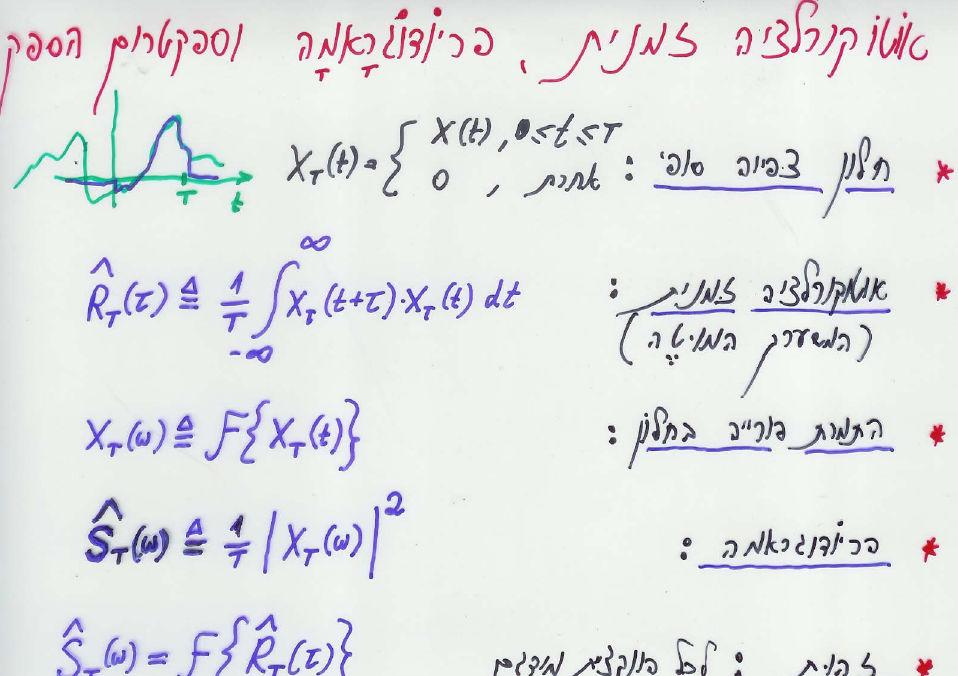 אוטוקורלציה זמנית, פריודוגראמה וספקטרום הספק
* חלון צפייה סופי: X_T(t) = { X(t), 0≤t≤T
0, אחרת
T t
* אוטוקורלציה זמנית: R̂_T(τ) ≜ 1/T ∫_{-∞}^{∞} X_T(t+τ)·X_T(t) dt
(המשערך המוטה)
* התמרת פורייה בחלון: X_T(ω) ≜ F{X_T(t)}
* פריודוגראמה: Ŝ_T(ω) ≜ 1/T |X_T(ω)|²
* זהות: לכל פונקצית מידגם Ŝ_T(ω) = F{R̂_T(τ)}